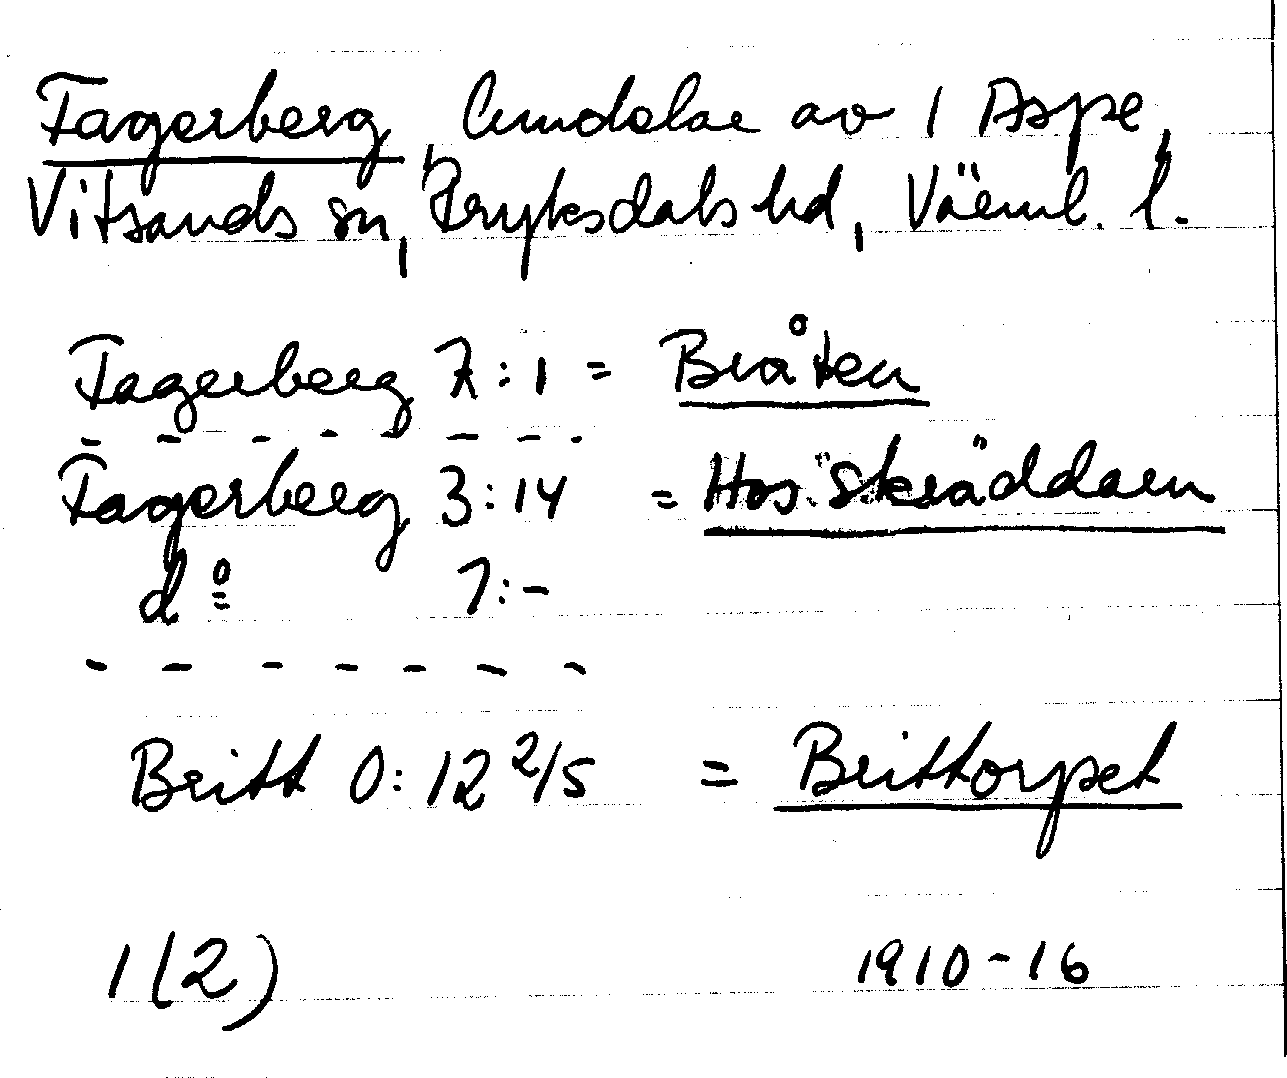 Fagerberg, lundelar av 1 Aspe,
Vitsands sn, Fryksdals hd, Värml. l.
Fagerberg 7:1 = Bråten
Fagerberg 3:14 = Hos "Skräddarn
d:o 7:-
Britt 0:12 2/5 = Brittorpet
1(2) 1910-16